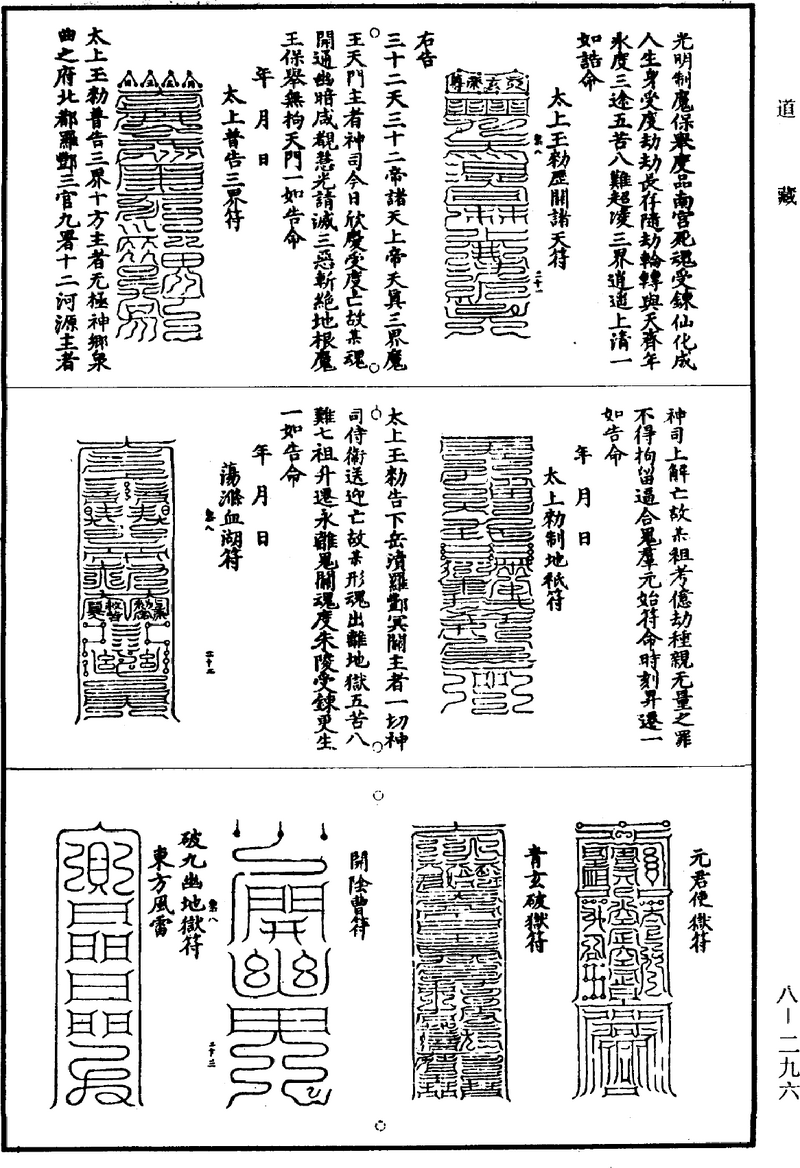 道藏
光明制魔保舉度品南宮死魂受鍊仙化成
人生身受度劫劫長存隨劫輪轉與天齊年
永度三途五苦八難超凌三界逍遥上清一
如誥命
太上玉勑歷關諸天符
右告
三十二天三十二帝諸天上帝天真三界魔
王天門主者神司今日欣慶受度亡故某魂
開通幽暗咸覩慧光請滅三惡斬絶地根魔
王保舉無拘天門一如告命
年月日
太上普告三界符
太上玉勑普告三界十方主者无極神鄉泉
曲之府北都羅酆三官九署十二河源主者
神司上解亡故某祖考億劫種親无量之罪
不得拘留逼合鬼羣元始符命時刻昇遷一
如告命
年月日
太上勑制地祇符
太上玉勑告下岳瀆羅酆冥關主者一切神
司侍衛送迎亡故某形魂出離地獄五苦八
難七祖升遷永離鬼關魂度朱陵受鍊更生
一如告命
年月日
蕩滌血湖符
元君使獄符
青玄破獄符
開陰曹符
破九幽地獄符
東方風雷
八－二九六